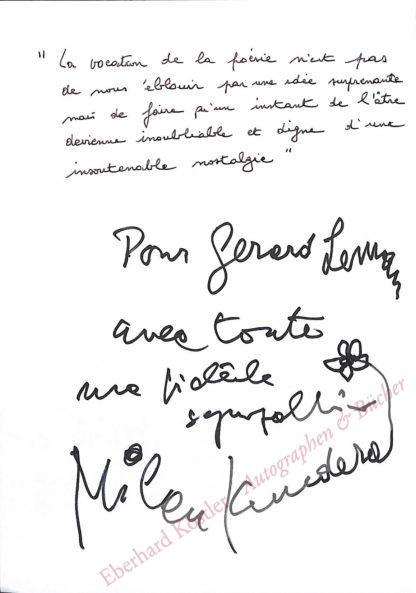 " La vocation de la poésie n'est pas
de nous éblouir par une idée surprenante
mais de faire qu'un instant de l'être
devienne inoubliable et digne d'une
insoutenable nostalgie "
Pour Gerard
avec toute
ma fidèle
sympathie
Milan Kundera
Eberhard Köstler Autographen & Bücher